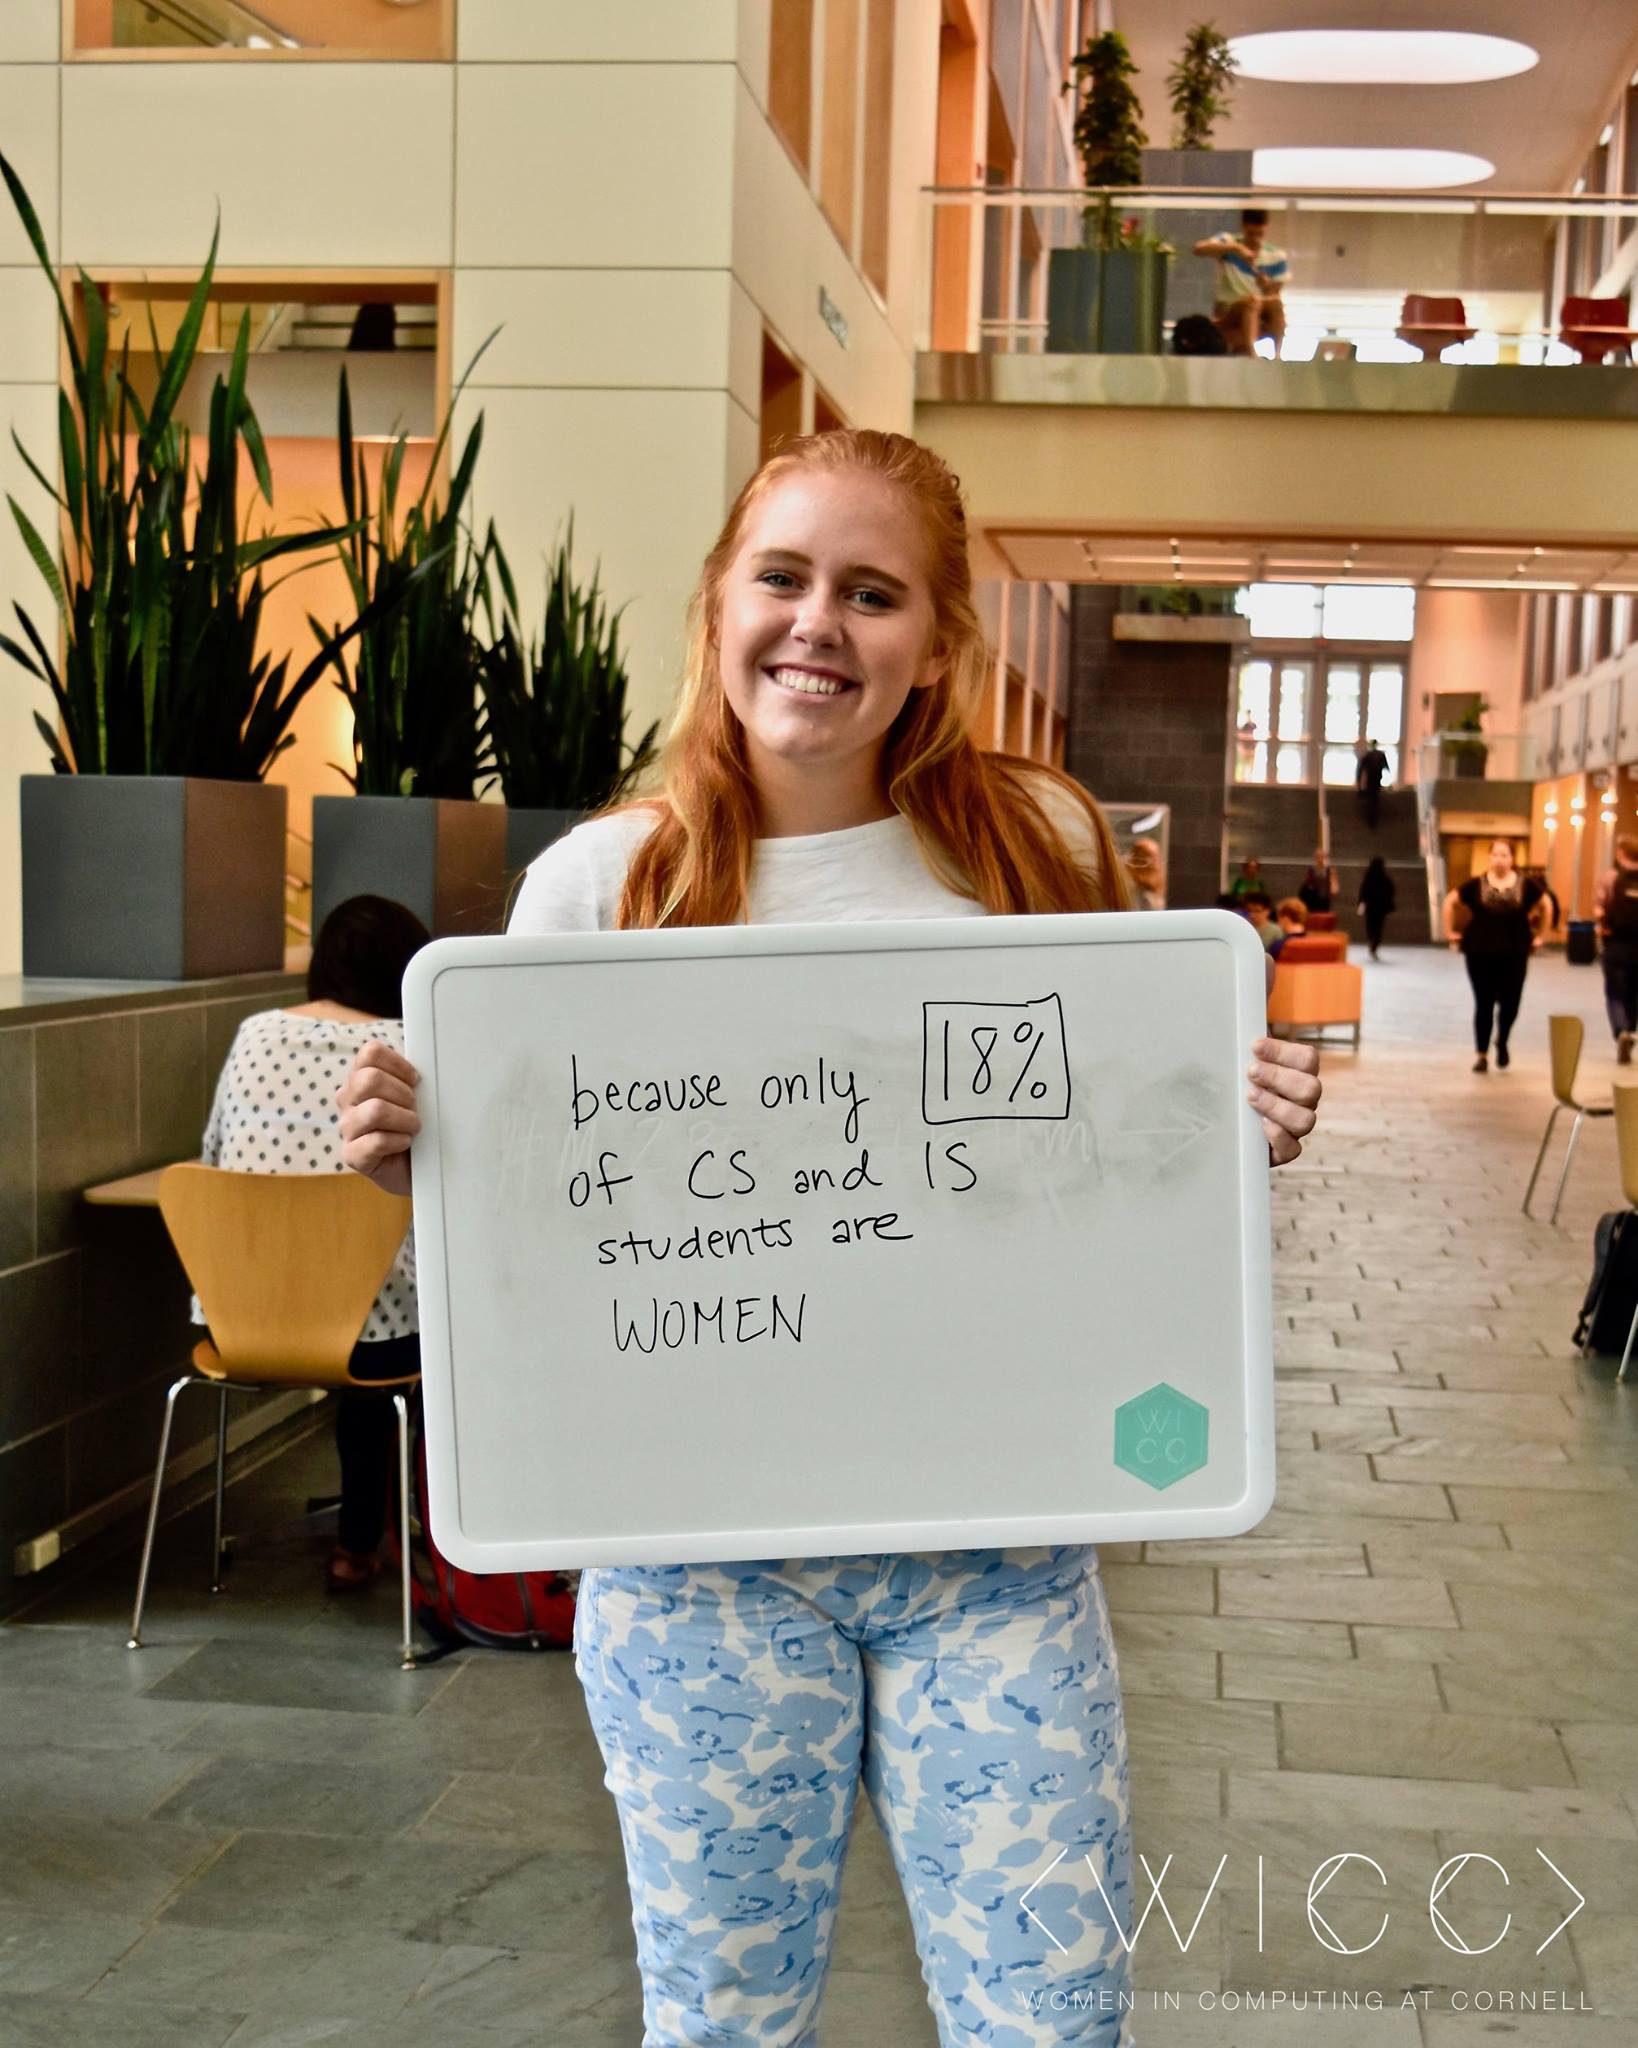 because only 18%
of CS and IS
students are
WOMEN
WI
CC
<WICC>
WOMEN IN COMPUTING AT CORNELL